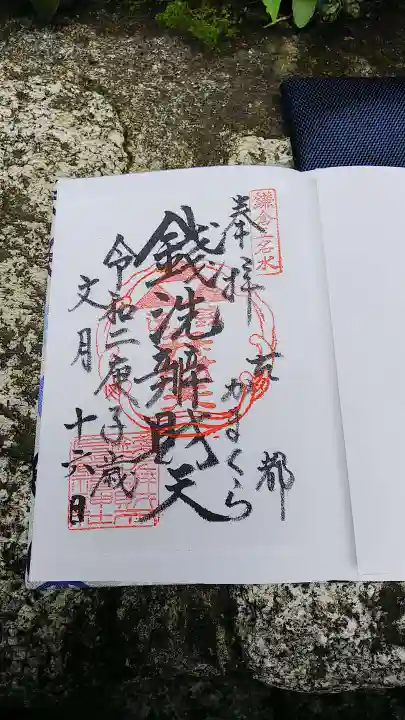 鎌倉五名水
奉拝
古都
かまくら
銭洗辨財天
令和二庚子歳
文月
十六日